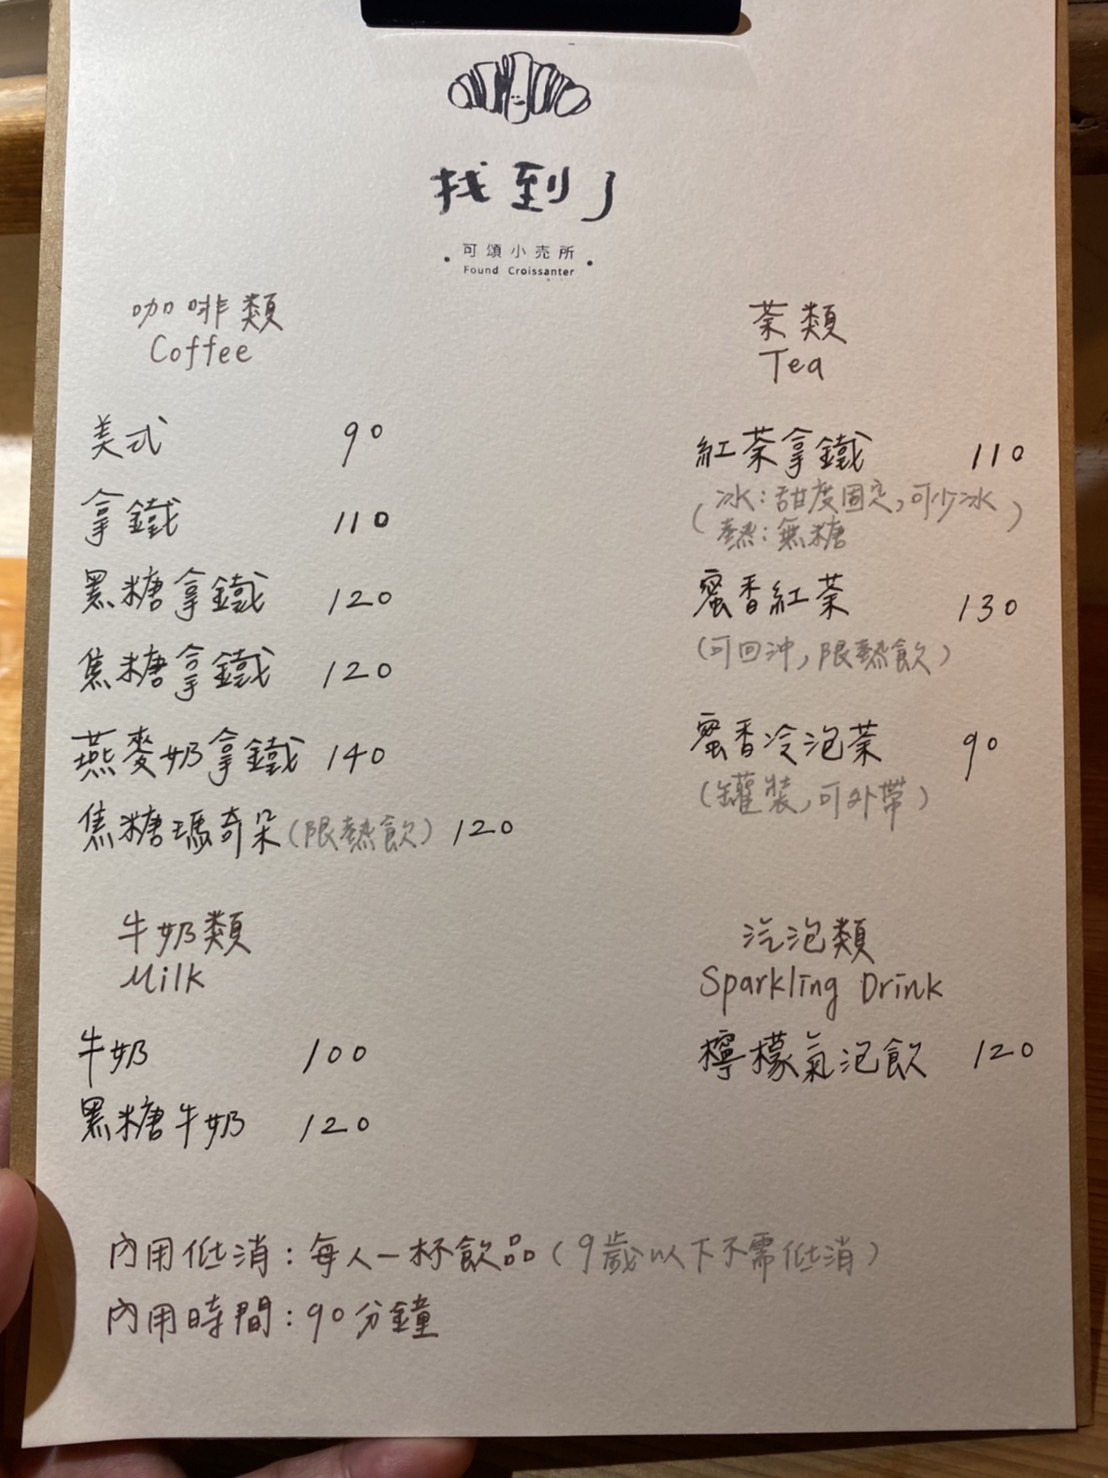 找到了
可頌小売所
Found Croissanter
咖啡類
Coffee
美式 90
拿鐵 110
黑糖拿鐵 120
焦糖拿鐵 120
燕麥奶拿鐵 140
焦糖瑪奇朵(限熱飲) 120
茶類
Tea
紅茶拿鐵 110
(冰:甜度固定,可少冰
熱:無糖)
蜜香紅茶 130
(可回沖,限熱飲)
蜜香冷泡茶 90
(罐裝,可外帶)
牛奶類
Milk
牛奶 100
黑糖牛奶 120
汽泡類
Sparkling Drink
檸檬氣泡飲 120
內用低消:每人一杯飲品(9歲以下不需低消)
內用時間:90分鐘